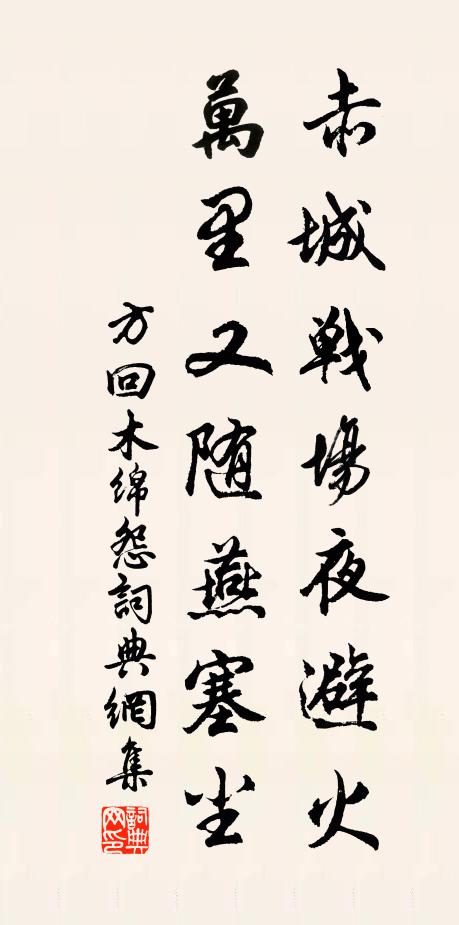 赤城戰場夜避火
萬里又随燕塞尘
方回木綿怨詞典網集
詞典网印